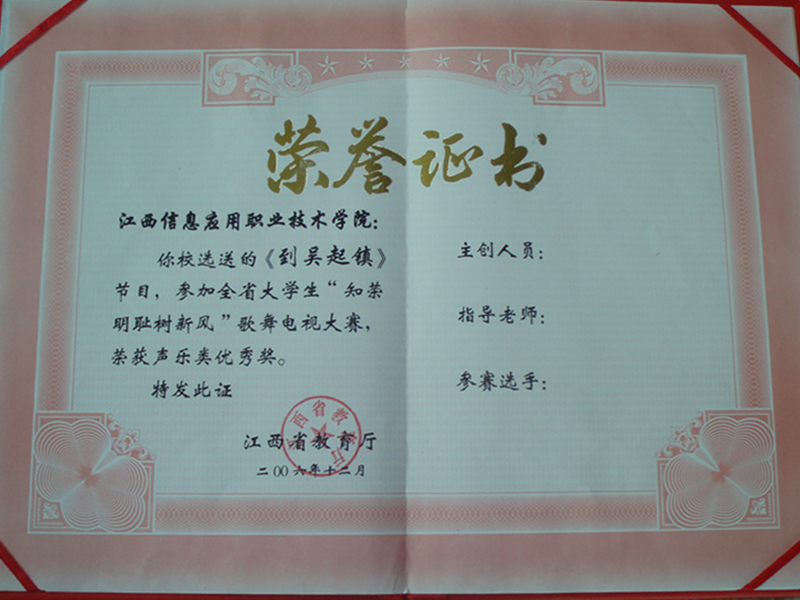 荣誉证书
江西信息应用职业技术学院：
你校选送的《到吴起镇》
节目，参加全省大学生“知荣
明耻树新风”歌舞电视大赛，
荣获声乐类优秀奖。
特发此证
江西省教育厅
二00六年十二月
主创人员：
指导老师：
参赛选手：
江西省教育厅